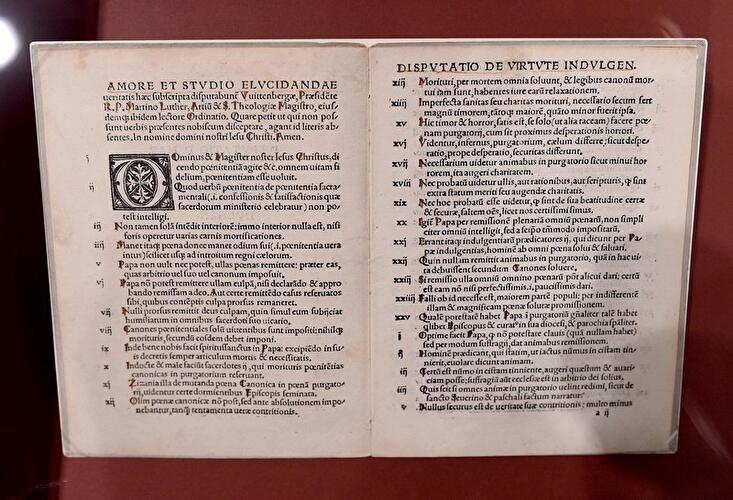 AMORE ET STVDIO ELVCIDANDAE
ueritatis hæc subscripta disputabunt̃ Vuittenbergæ, Præsidẽte
R. P. Martino Luther, Artiũ & S. Theologiæ Magistro, eius-
dem q; ibidem lectore Ordinatio. Quare petit ut qui non pos-
sunt uerbis præsentes nobiscum disceptare, agant id literis ab-
sentes. In nomine domini nostri Iesu Christi. Amen.
i Ominus & Magister noster Iesus Christus, di
cendo pœnitentiã agite &c̃, omnem uitam fi
delium, pœnitentiam esse uoluit.
ij Quod uerbũ pœnitentia de pœnitentia sacra-
mentali (.i. confessionis & satisfactionis quæ
sacerdotum ministerio celebratur) non po-
test intelligi.
iij Non tamen solã intẽdit interiorẽ; immo interior nulla est, nisi
foris operetur uarias carnis mortificationes.
iiij Manet itaq; pœna donec manet odium sui (.i. pœnitentia uera
intus) scilicet usq; ad introitum regni cælorum.
v Papa non uult nec potest, ullas pœnas remittere; præter eas,
quas arbitrio uel suo uel canonum imposuit.
vj Papa nõ potest remittere ullam culpã, nisi declarãdo & appro
bando remissam a deo, Aut certe remittẽdo casus reseruatos
sibi, quibus contẽptis culpa prorsus remaneret.
vij Nulli prorsus remittit deus culpam, quin simul eum subijciat
humiliatum in omnibus sacerdoti suo uicario.
viij Canones pœnitentiales solũ uiuentibus sunt impositi; nihilq;
morituris, secundũ eosdem debet imponi.
ix Inde bene nobis facit spiritussanctus in Papa; excipiẽdo in su-
is decretis semper articulum mortis & necessitatis.
x Indocte & male faciũt sacerdotes ij, qui morituris pœnitẽtias
canonicas in purgatorium reseruant.
xj Zizania illa de mutanda pœna Canonica in pœnã purgato-
rij, uidentur certe dormientibus Episcopis seminata.
xij Olim pœnæ canonicæ nõ post, sed ante absolutionem impo-
nebantur, tanq̃ tentamenta ueræ contritionis.
DISPVTATIO DE VIRTVTE INDVLGEN.
xiij Morituri, per mortem omnia soluunt, & legibus canonũ mor-
tui iam sunt, habentes iure earũ relaxationem.
xiiij Imperfecta sanitas seu charitas morituri, necessario secum fert
magnũ timorem, tãtoq; maiorẽ, quãto minor fuerit ipsa.
xv Hic timor & horror, satis est, se solo (ut alia taceam) facere pœ-
nam purgatorij, cum sit proximus desperationis horrori.
xvj Videntur, infernus, purgatorium, cælum differre; sicut despe-
ratio, prope desperatio, securitas differunt.
xvij Necessarium uidetur animabus in purgatorio sicut minui hor
rorem, ita augeri charitatem.
xviij Nec probatũ uidetur ullis, aut rationibus, aut scripturis, q̃ sint
extra statum meriti seu augendæ charitatis.
xix Nec hoc probatũ esse uidetur, q̃ sint de sua beatitudine certæ
& securæ, saltem oẽs, licet nos certissimi simus.
xx Igit̃ Papa per remissionẽ plenariã omniũ pœnarũ, non simpli
citer omniũ intelligit, sed a seipso tãtũmodo impositarũ.
xxj Errant itaq; indulgentiarũ prædicatores ij, qui dicunt per Pa-
pæ indulgentias, hominẽ ab omni pœna solui & saluari.
xxij Quin nullam remittit animabus in purgatorio, quã in hac ui-
ta debuissent secundum Canones soluere.
xxiij Si remissio ulla omniũ omnino pœnarũ põt alicui dari; certũ
est eam nõ nisi perfectissimis .i. paucissimis dari.
xxiiij Falli ob id necesse est, maiorem partẽ populi; per indifferentẽ
illam & magnificam pœnæ solutæ promissionem.
xxv Qualẽ potestatẽ habet Papa ĩ purgatoriũ gñaliter talẽ habet
q̃libet Episcopus & curat⁹ in sua diocesi, & parochia sp̃aliter.
i Optime facit Papa, q̃ nõ potestate clauis (quã nullam habet)
sed per modum suffragij, dat animabus remissionem.
ij Hominẽ prædicant, qui statim, ut iactus nũmus in cistam tin-
nierit, euolare dicunt animam.
iij Certũ est nũmo in cistam tinniente, augeri quæstum & auari-
ciam posse; suffragiũ aũt ecclesiæ est in arbitrio dei solius.
iiij Quis scit si omnes animæ in purgatorio uelint redimi, sicut de
sancto Seuerino & paschali factum narratur.
v Nullus securus est de veritate suæ contritionis; multo minus
a ij